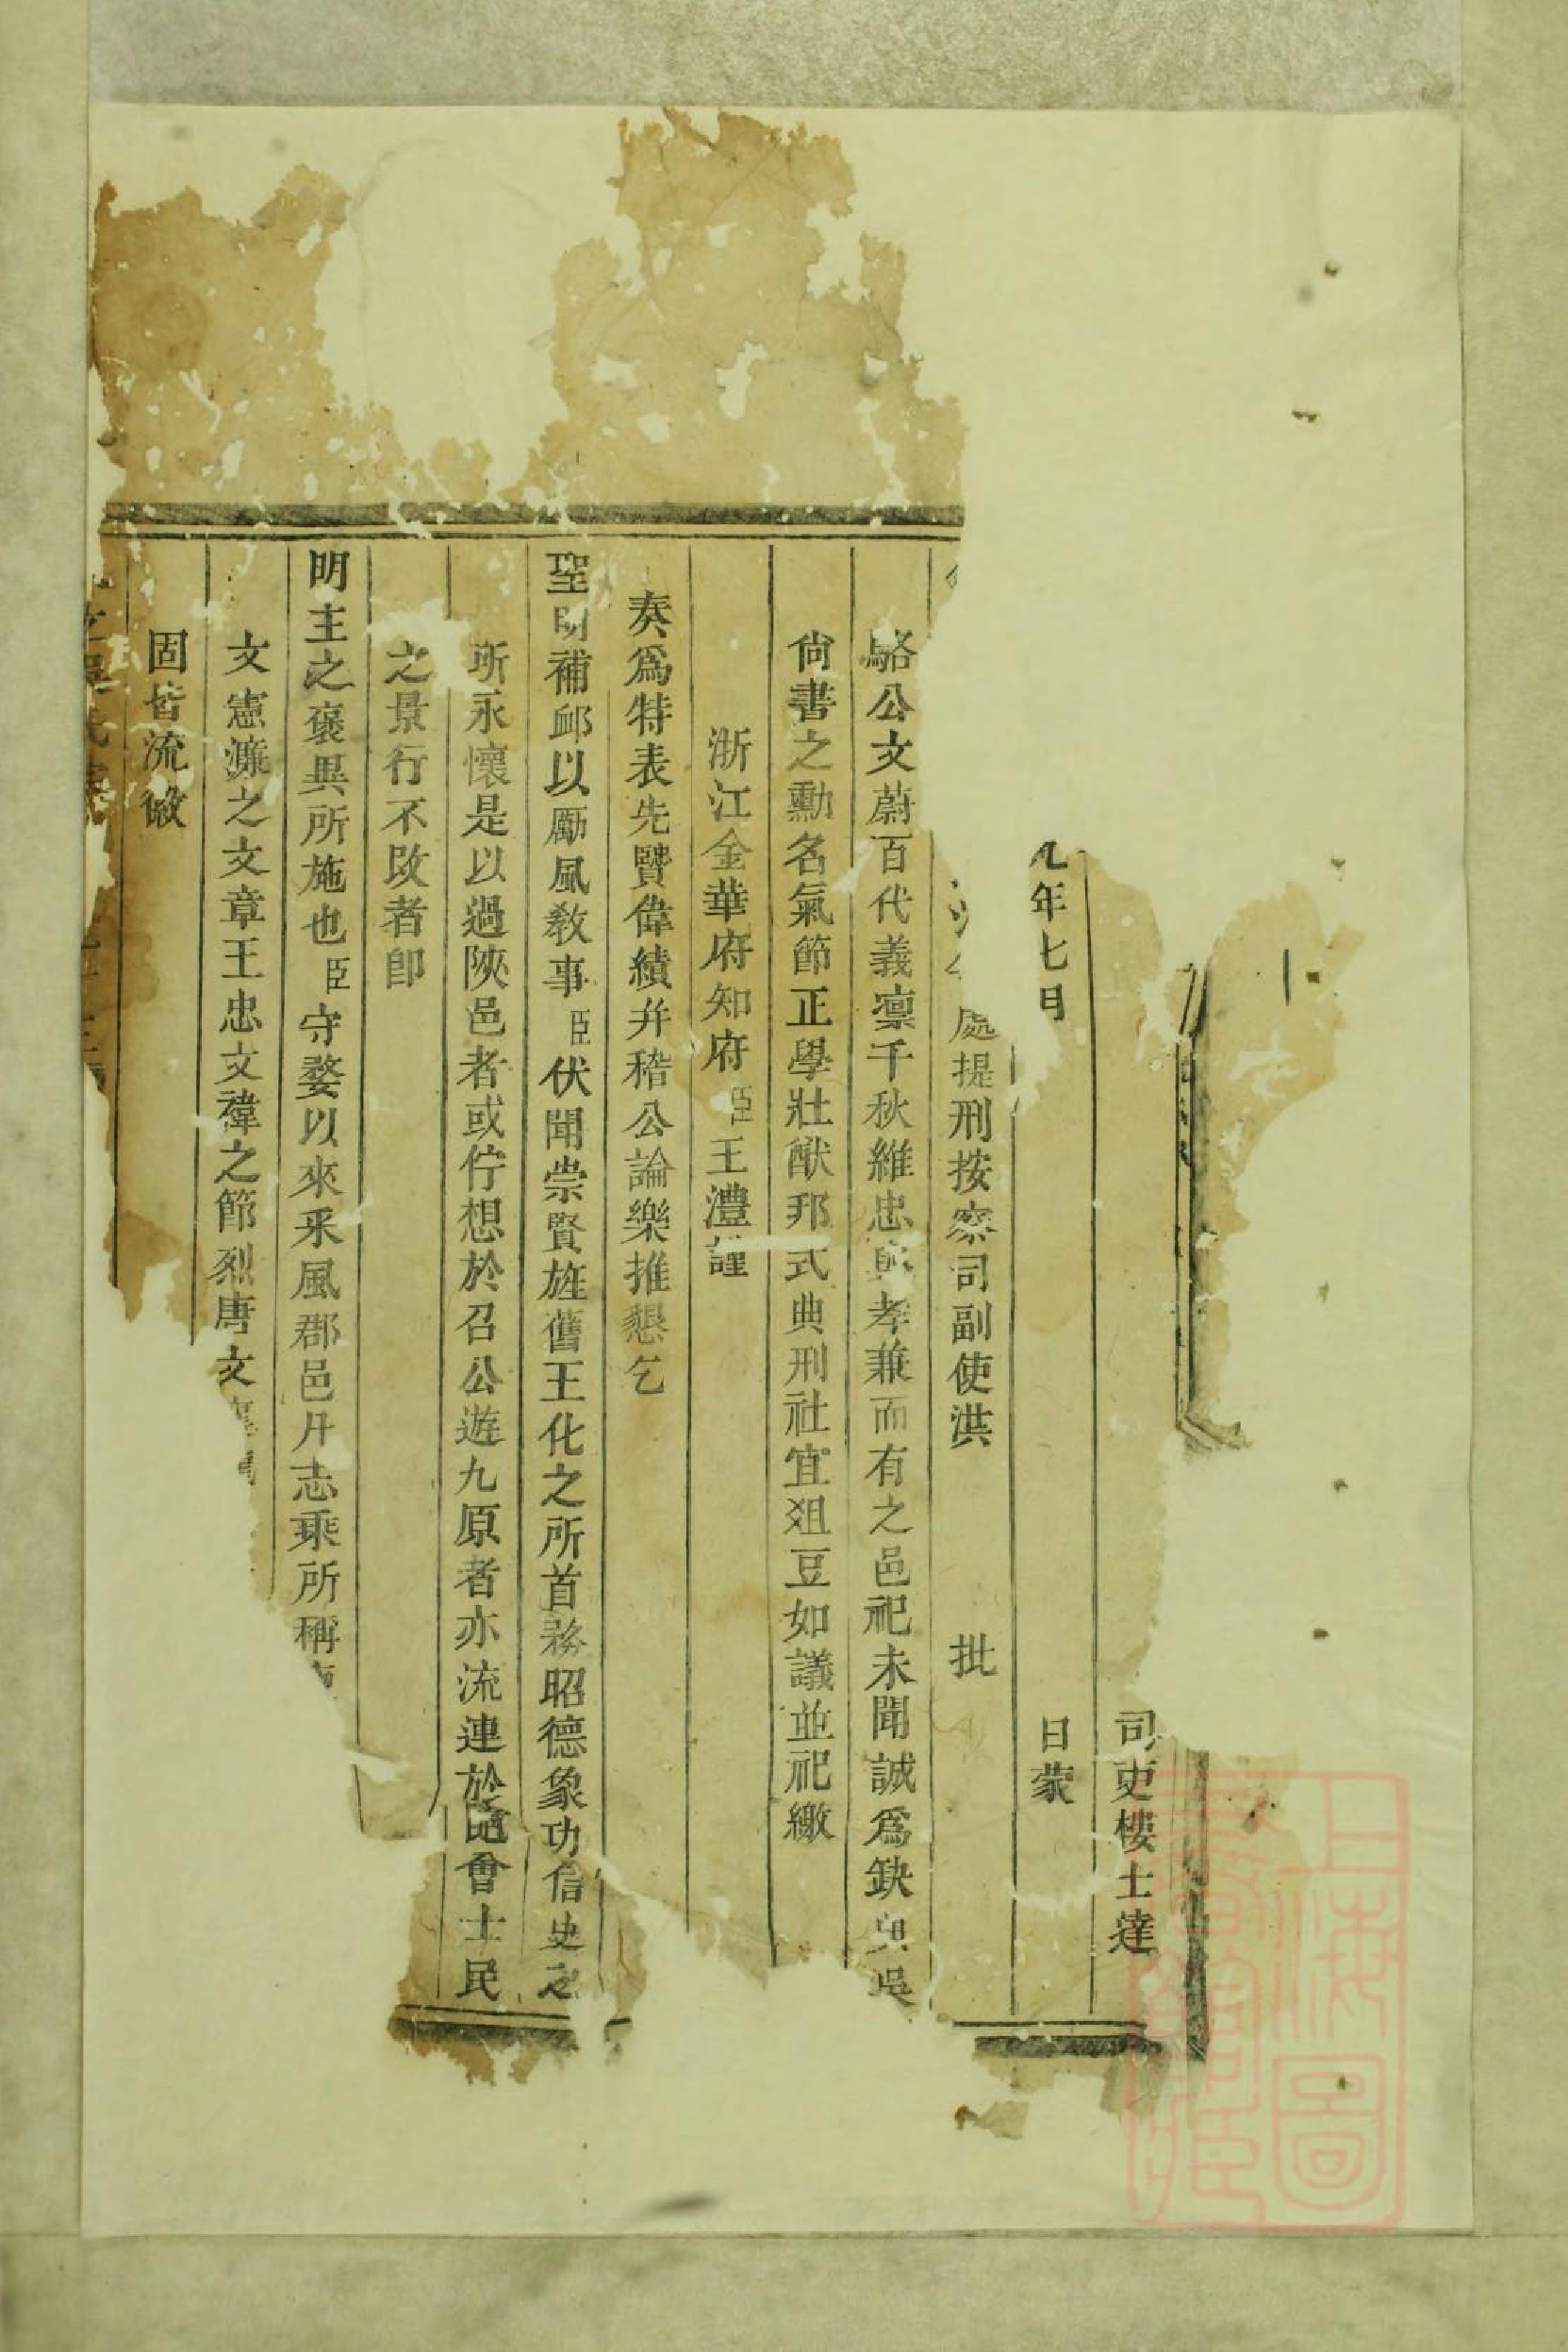 司吏樓士達
九年七月 日蒙
處提刑按察司副使洪 批
駱公文蔚百代義凛千秋維忠與孝兼而有之邑祀未聞誠爲缺典吳
尚書之勳名氣節正學壯猷邦式典刑社宜爼豆如議並祀繳
浙江金華府知府臣王澧謹
奏爲特表先賢偉績幷稽公論樂推懇乞
聖明補䘏以勵風敎事臣伏聞崇賢旌舊王化之所首務昭德象功信史之
所永懷是以過陜邑者或佇想於召公遊九原者亦流連於隨會士民
之景行不改者卽
明主之褒異所施也臣守婺以來采風郡邑幷志乘所稱
文憲濂之文章王忠文禕之節烈唐文
固皆流徽